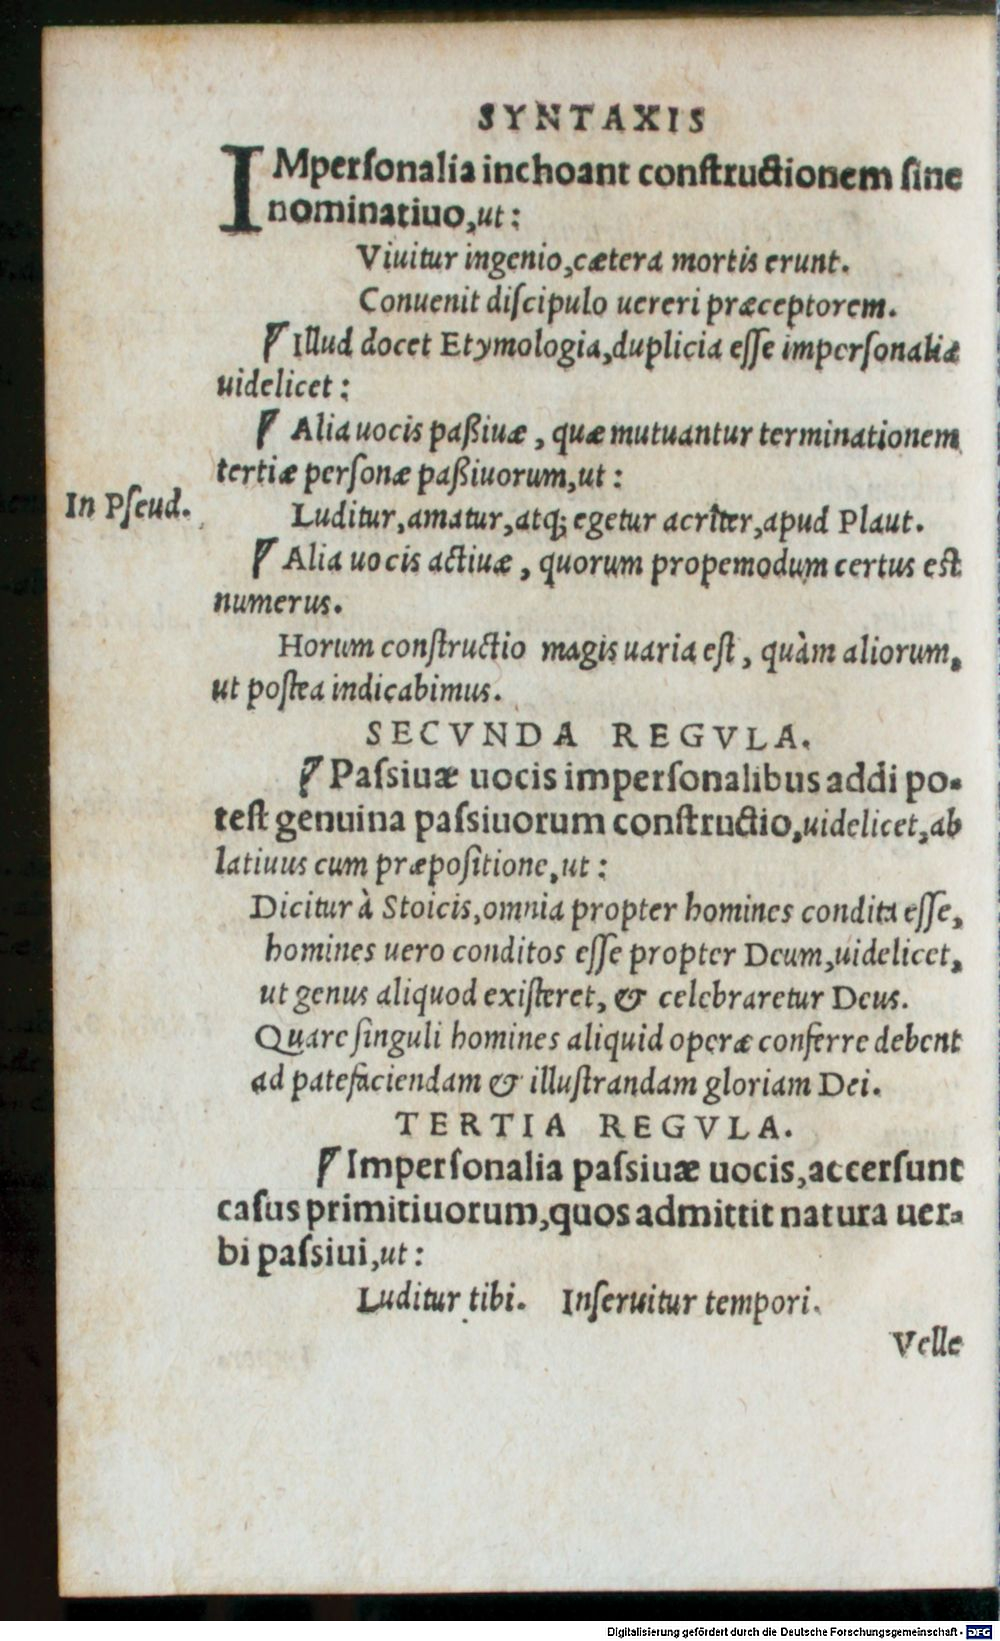 SYNTAXIS
IMperſonalia inchoant conſtructionem ſine
nominatiuo, ut:
Viuitur ingenio, cætera mortis erunt.
Conuenit diſcipulo uereri præceptorem.
¶ Illud docet Etymologia, duplicia eſſe imperſonalia
uidelicet:
¶ Alia uocis paßiuæ, quæ mutuantur terminationem
tertiæ perſonæ paßiuorum, ut:
In Pſeud.
Luditur, amatur, atq; egetur acriter, apud Plaut.
¶ Alia uocis actiuæ, quorum propemodum certus eſt
numerus.
Horum conſtructio magis uaria eſt, quàm aliorum,
ut poſtea indicabimus.
SECVNDA REGVLA.
¶ Paſsiuæ uocis imperſonalibus addi po-
teſt genuina paſsiuorum conſtructio, uidelicet, ab
latiuus cum præpoſitione, ut:
Dicitur à Stoicis, omnia propter homines condita eſſe,
homines uero conditos eſſe propter Deum, uidelicet,
ut genus aliquod exiſteret, & celebraretur Deus.
Quare ſinguli homines aliquid operæ conferre debent
ad patefaciendam & illuſtrandam gloriam Dei.
TERTIA REGVLA.
¶ Imperſonalia paſsiuæ uocis, accerſunt
caſus primitiuorum, quos admittit natura uer-
bi paſsiui, ut:
Luditur tibi. Inſeruitur tempori.
Velle
Digitalisierung gefördert durch die Deutsche Forschungsgemeinschaft - DFG